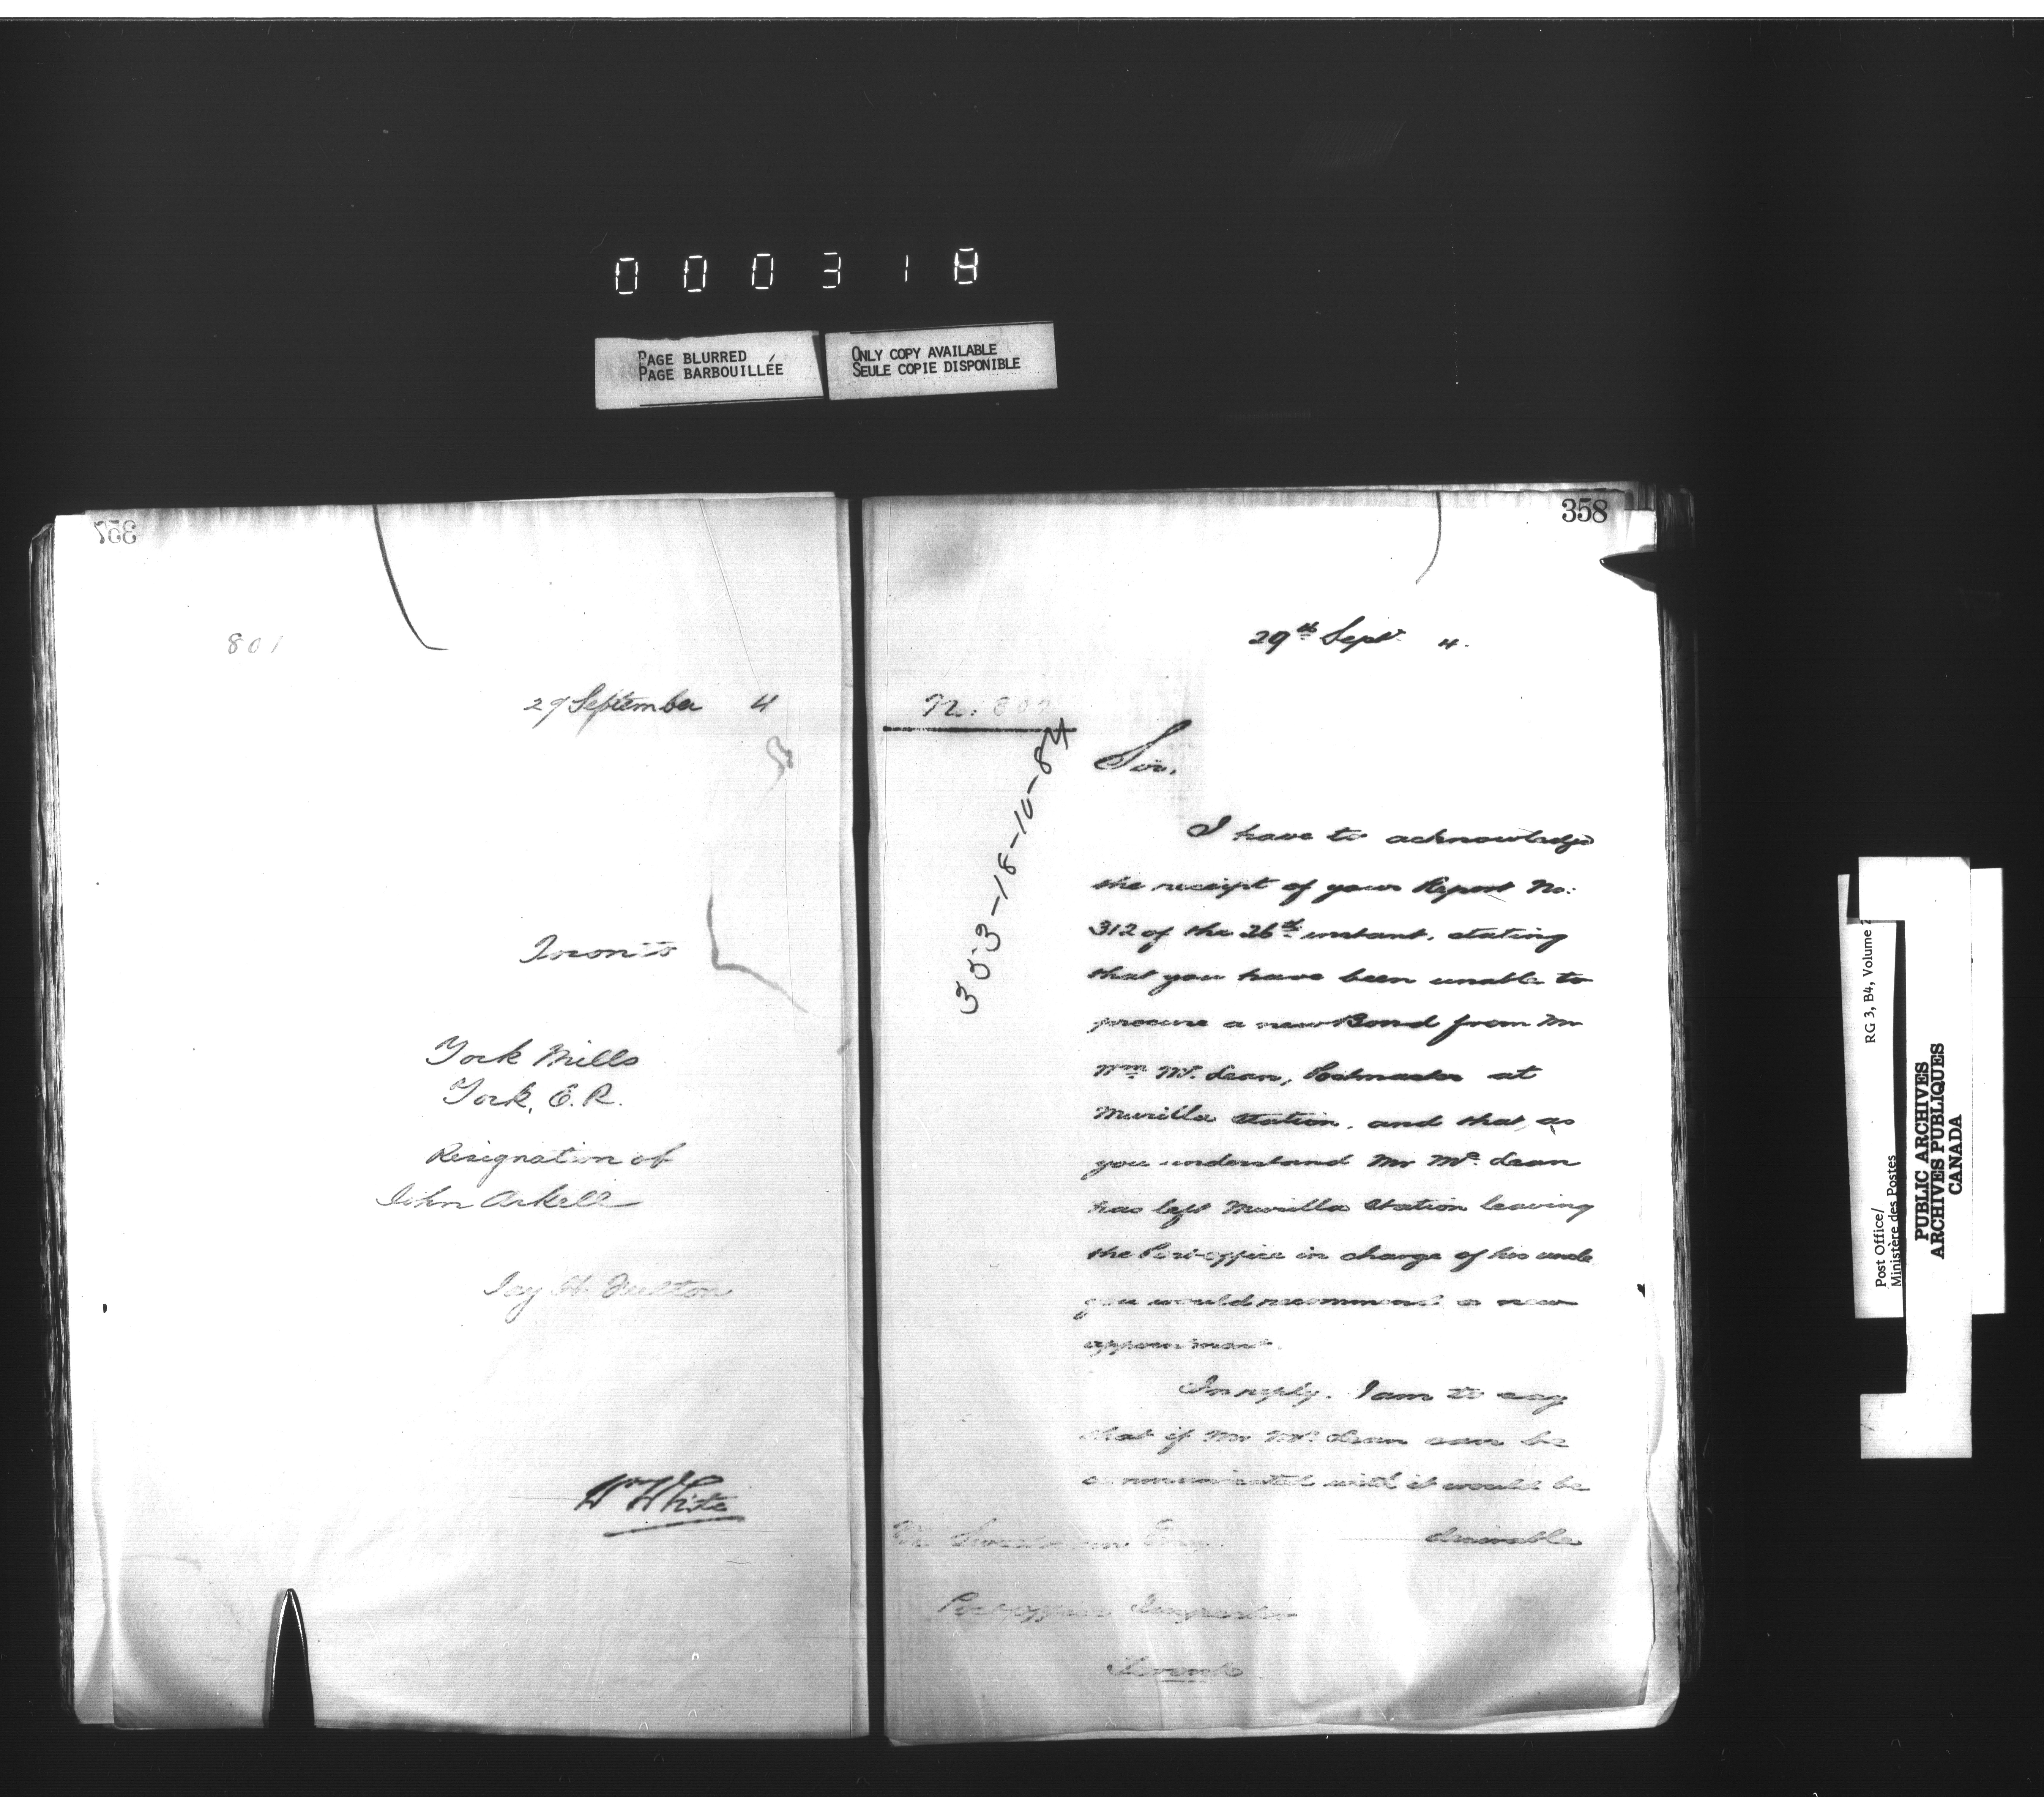 000318
PAGE BLURRED
PAGE BARBOUILLÉE
ONLY COPY AVAILABLE
SEULE COPIE DISPONIBLE
357
801
29 September 4
Toronto
York Mills
York, E.R.
Resignation of
John Arkell
Jay H. Fulton
Wm White
358
29th Sept 4.
No. 802
353-18-10-84
Sir,
I have to acknowledge
the receipt of your Report No:
312 of the 26th instant, stating
that you have been unable to
procure a new Bond from Mr
Wm Mc. Lean, Postmaster at
Murilla Station, and that, as
you understand Mr Mc. Lean
has left Murilla Station leaving
the Post-office in charge of his uncle
you would recommend a new
appointment.
In reply, I am to say
that if Mr Mc. Lean can be
communicated with it would be
desirable
Esq.
Post-office Inspector
Toronto
Post Office/
Ministère des Postes
RG 3, B4, Volume
PUBLIC ARCHIVES
ARCHIVES PUBLIQUES
CANADA